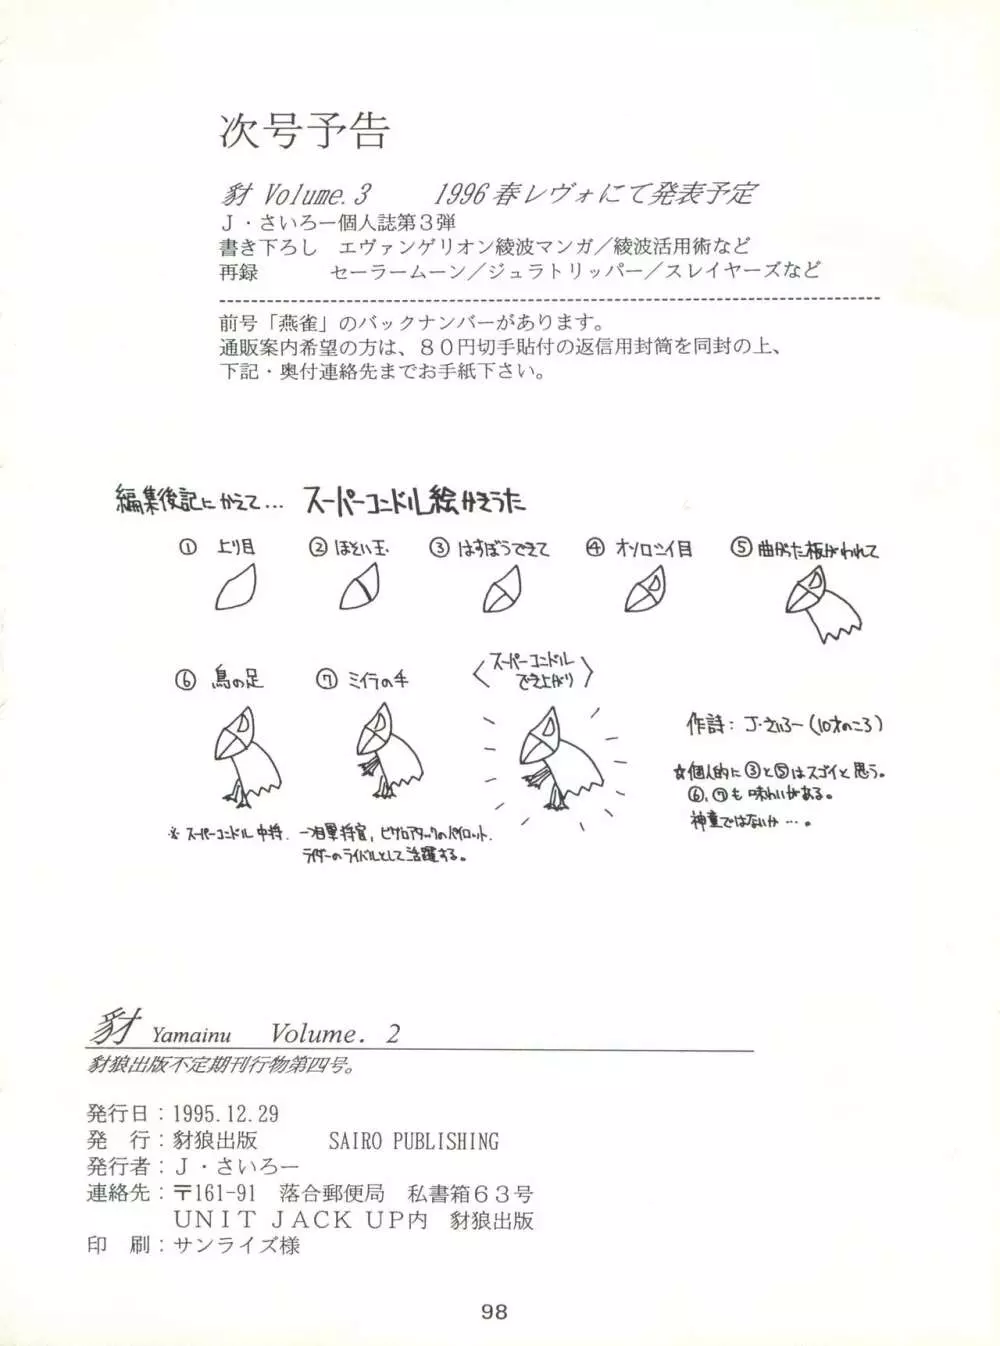 次号予告
豺 Volume.3 1996春レヴォにて発表予定
J・さいろー個人誌第3弾
書き下ろし エヴァンゲリオン綾波マンガ／綾波活用術など
再録 セーラームーン／ジュラトリッパー／スレイヤーズなど
前号「燕雀」のバックナンバーがあります。
通販案内希望の方は、80円切手貼付の返信用封筒を同封の上、
下記・奥付連絡先までお手紙下さい。
編集後記にかえて… スーパーコンドル絵かきうた
① 上り目 ② ほそい玉 ③ はすぼうできて ④ オソロシイ目 ⑤ 曲がった板がわれて
⑥ 鳥の足 ⑦ ミイラの手 〈スーパーコンドル
でき上がり〉
作詩：J・さいろー（10才のころ）
☆個人的に③と⑤はスゴイと思う。
⑥、⑦も味わいがある。
神童ではないか…。
※ スーパーコンドル中将.
ライダーのライバルとして活躍する。
豺 Yamainu Volume. 2
豺狼出版不定期刊行物第四号。
発行日：1995.12.29
発 行：豺狼出版 SAIRO PUBLISHING
発行者：J・さいろー
連絡先：〒161-91 落合郵便局 私書箱63号
UNIT JACK UP内 豺狼出版
印 刷：サンライズ様
98